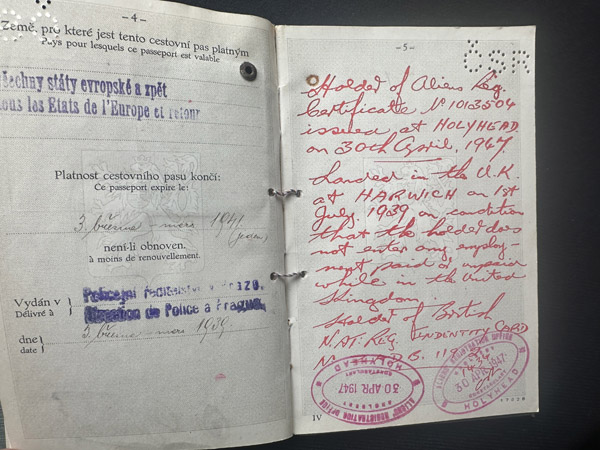 –4–
Země, pro které jest tento cestovní pas platným
Pays pour lesquels ce passeport est valable
všechny státy evropské a zpět
tous les Etats de l'Europe et retour
Platnost cestovního pasu končí:
Ce passeport expire le:
3. března - mars 1941
není-li obnoven.
à moins de renouvellement.
Vydán v
Délivré à
Policejní ředitelství v Praze.
Direction de Police à Prague.
dne
date
3. března - mars 1939
–5–
ČSR
Holder of Aliens Reg.
Certificate No 1013504
issued at HOLYHEAD
on 30th April, 1947
Landed in the U.K.
at HARWICH on 1st
July, 1939 on condition
that the holder does
not enter any employ-
ment paid or unpaid
while in the United
Kingdom.
Holder of British
NAT. Reg. IDENTITY CARD
ALIENS REGISTRATION OFFICE
30 APR 1947
HOLYHEAD
ALIENS REGISTRATION OFFICE
30 APR 1947
HOLYHEAD
IV